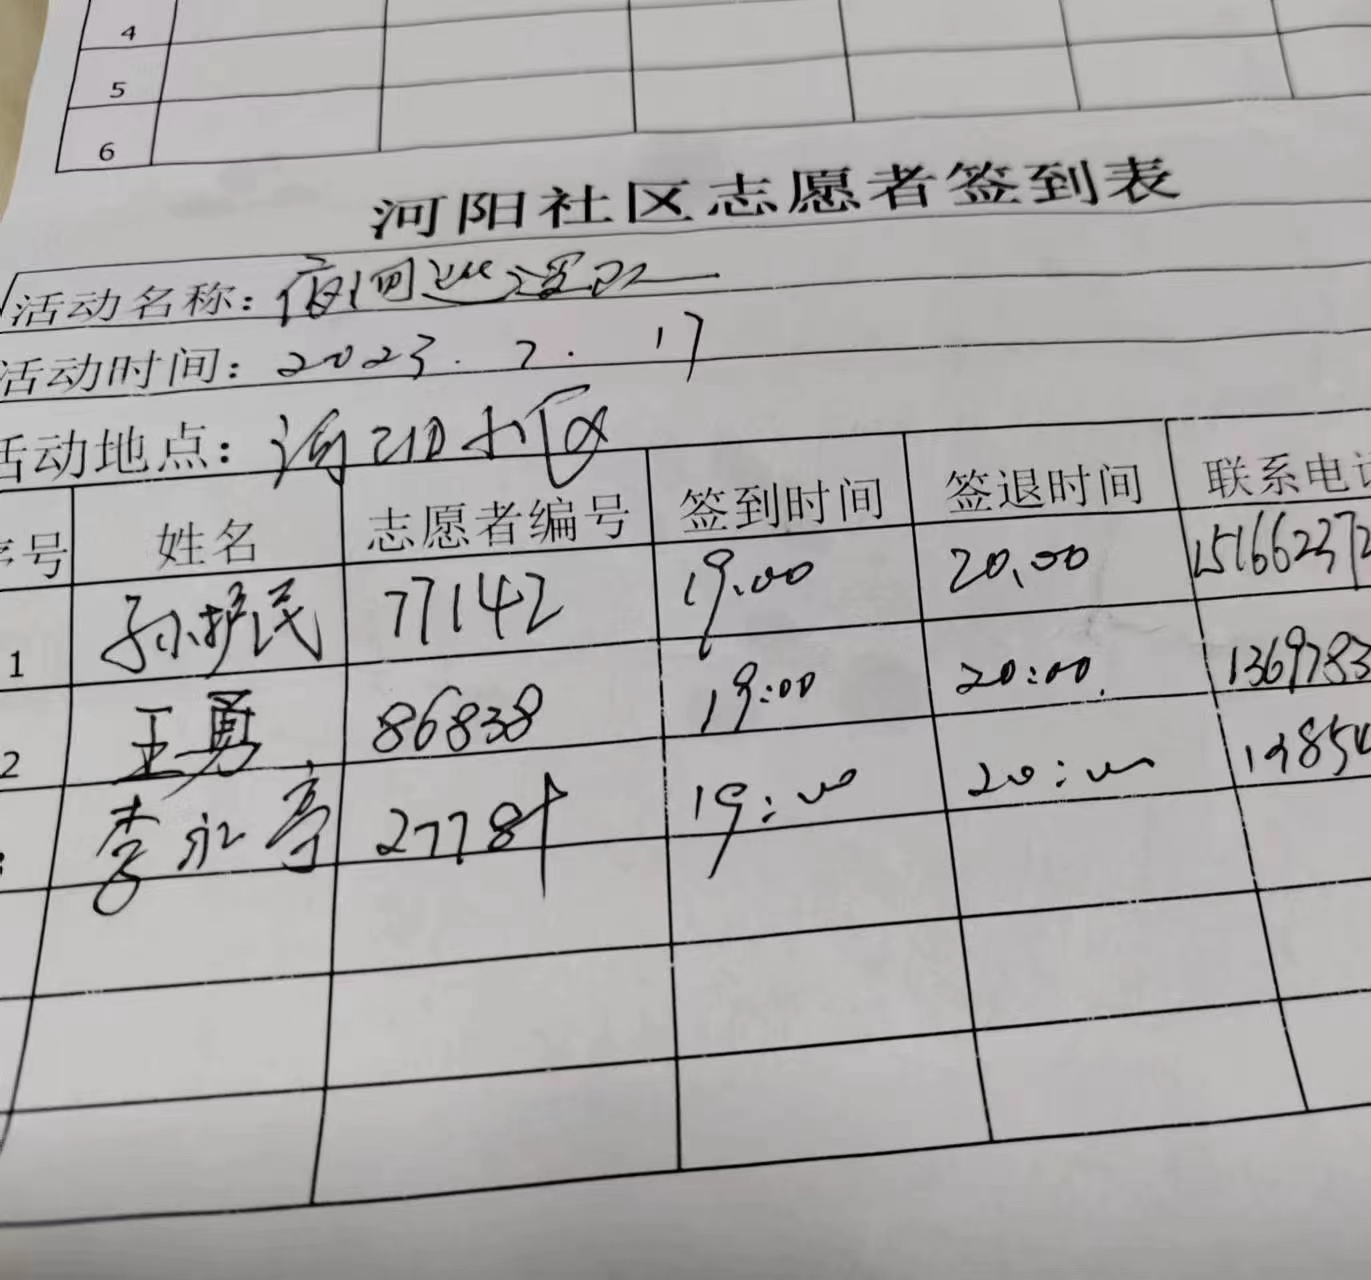 4
5
6
河阳社区志愿者签到表
活动名称：夜间巡逻
活动时间：2023.7.17
活动地点：河阳小区
序号 姓名 志愿者编号 签到时间 签退时间 联系电话
1 孙护民 77142 19.00 20.00 151662372
2 王勇 86838 19:00 20:00 1369783
李永亭 27784 19:00 20:00 19854